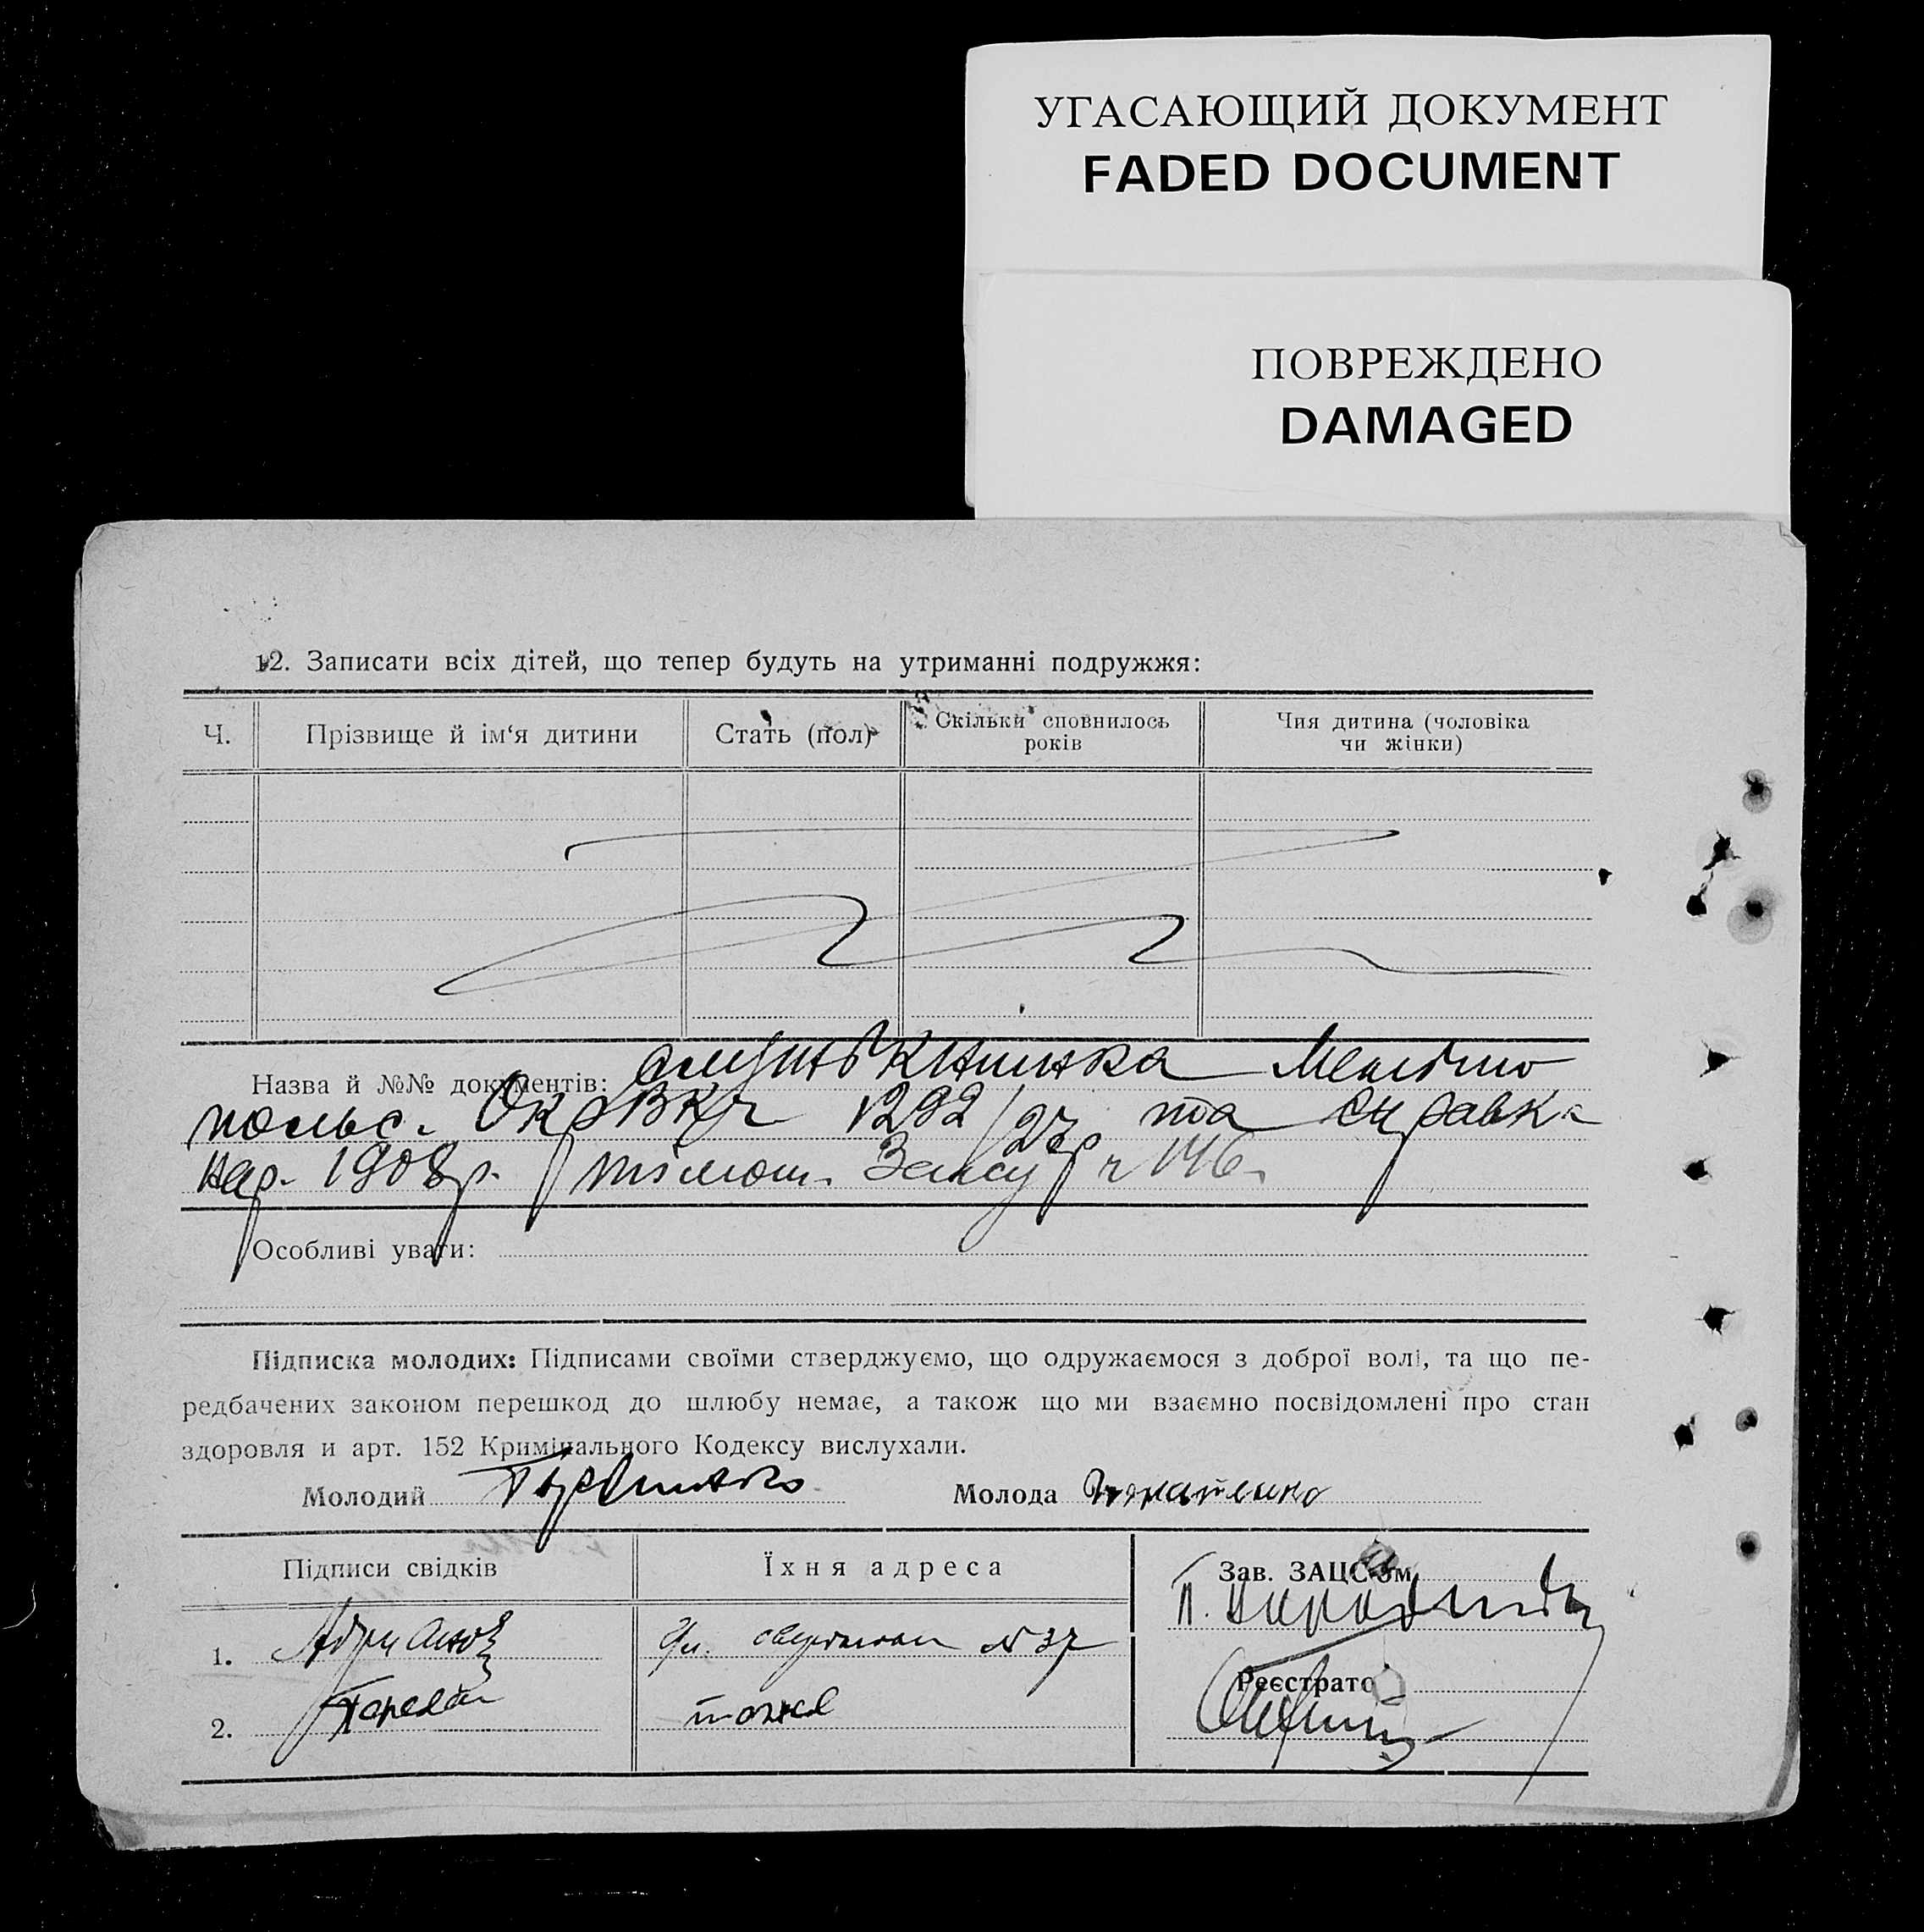 УГАСАЮЩИЙ ДОКУМЕНТ
FADED DOCUMENT
ПОВРЕЖДЕНО
DAMAGED
12. Записати всіх дітей, що тепер будуть на утриманні подружжя:
Ч. Прізвище й ім‘я дитини Стать (пол) Скільки сповнилось років Чия дитина (чоловіка чи жінки)
Назва й №№ документів:
польс. 1292/27р та справка
нар. 1908р. № 146.
Особливі уваги:
Підписка молодих: Підписами своїми стверджуємо, що одружаємося з доброї волі, та що пе-
редбачених законом перешкод до шлюбу немає, а також що ми взаємно посвідомлені про стан
здоровля и арт. 152 Кримінального Кодексу вислухали.
Молодий Молода
Підписи свідків Їхня адреса Зав. ЗАЦС‘ом
1. N 37
Реєстрато
2. тоже